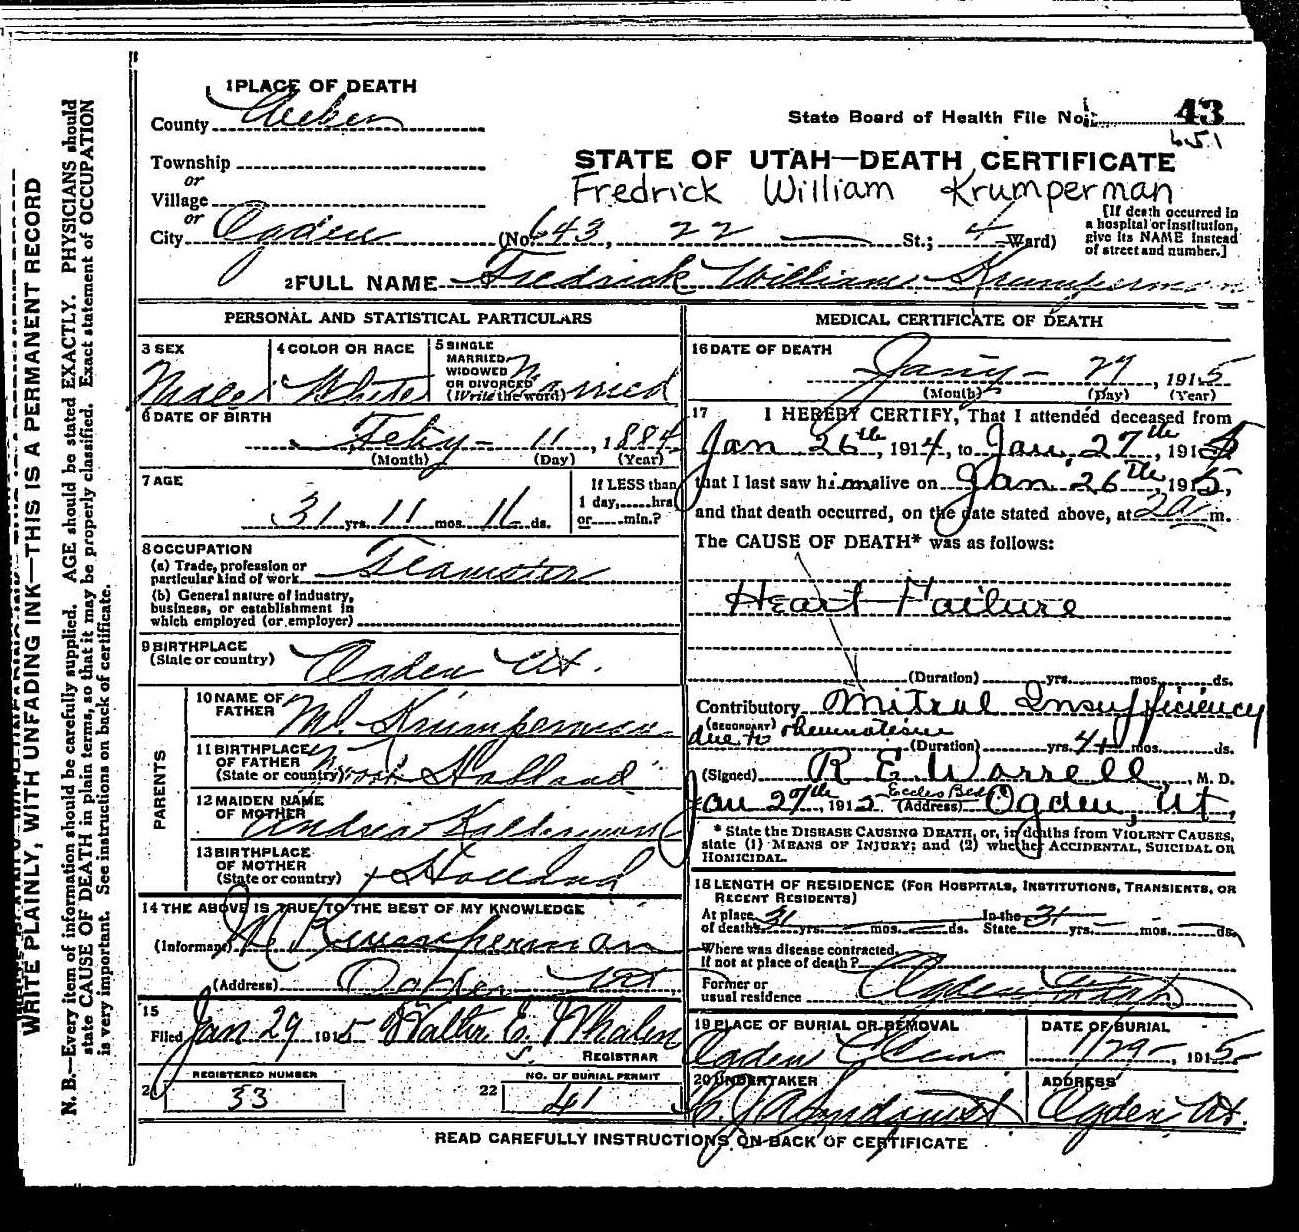 WRITE PLAINLY, WITH UNFADING INK—THIS IS A PERMANENT RECORD
N. B.—Every item of information should be carefully supplied. AGE should be stated EXACTLY. PHYSICIANS should
state CAUSE OF DEATH in plain terms, so that it may be properly classified. Exact statement of OCCUPATION
is very important. See instructions on back of certificate.
1 PLACE OF DEATH
County Weber
Township
or
Village
or
City Ogden (No. 643, 22 St.; 4 Ward)
State Board of Health File No. 43
651
STATE OF UTAH—DEATH CERTIFICATE
Fredrick William Krumperman
[If death occurred in
a hospital or institution,
give its NAME instead
of street and number.]
2 FULL NAME Fredrick William Krumperman
PERSONAL AND STATISTICAL PARTICULARS
3 SEX
Male
4 COLOR OR RACE
White
5 SINGLE
MARRIED
WIDOWED
OR DIVORCED
(Write the word)
Married
6 DATE OF BIRTH
Feby - 11, 1884
(Month) (Day) (Year)
7 AGE
31 yrs. 11 mos. 16 ds.
If LESS than
1 day,......hrs
or......min.?
8 OCCUPATION
(a) Trade, profession or
particular kind of work Teamster
(b) General nature of industry,
business, or establishment in
which employed (or employer)
9 BIRTHPLACE
(State or country)
Ogden Ut.
PARENTS
10 NAME OF
FATHER
M. Krumperman
11 BIRTHPLACE
OF FATHER
(State or country)
Holland
12 MAIDEN NAME
OF MOTHER
Andrea
13 BIRTHPLACE
OF MOTHER
(State or country)
Holland
14 THE ABOVE IS TRUE TO THE BEST OF MY KNOWLEDGE
(Informant) M Krumperman
(Address) Ogden Ut
15
Filed Jan 29 1915 Walter E. Whalen
REGISTRAR
REGISTERED NUMBER
21 33
NO. OF BURIAL PERMIT
22 41
MEDICAL CERTIFICATE OF DEATH
16 DATE OF DEATH
Jany - 27, 1915
(Month) (Day) (Year)
17 I HEREBY CERTIFY, That I attended deceased from
Jan 26th, 1914, to Jan 27th 1915
that I last saw him alive on Jan 26th, 1915,
and that death occurred, on the date stated above, at 2 a m.
The CAUSE OF DEATH* was as follows:
Heart Failure
(Duration) yrs. mos. ds.
Contributory Mitral Insufficiency
(SECONDARY)
due to rheumatism
(Duration) yrs. 4+ mos. ds.
(Signed) R E Worrell, M. D.
Jan 27th, 1915 (Address) Eccles Bld Ogden, Ut,
* State the DISEASE CAUSING DEATH, or, in deaths from VIOLENT CAUSES,
state (1) MEANS OF INJURY; and (2) whether ACCIDENTAL, SUICIDAL OR
HOMICIDAL.
18 LENGTH OF RESIDENCE (FOR HOSPITALS, INSTITUTIONS, TRANSIENTS, OR
RECENT RESIDENTS)
At place
of death 31 yrs. mos. ds.
In the
State 31 yrs. mos. ds.
Where was disease contracted,
If not at place of death?
Former or
usual residence Ogden Utah
19 PLACE OF BURIAL OR REMOVAL
Ogden Cem
DATE OF BURIAL
1/29 - 1915
20 UNDERTAKER
ADDRESS
Ogden Ut.
READ CAREFULLY INSTRUCTIONS ON BACK OF CERTIFICATE